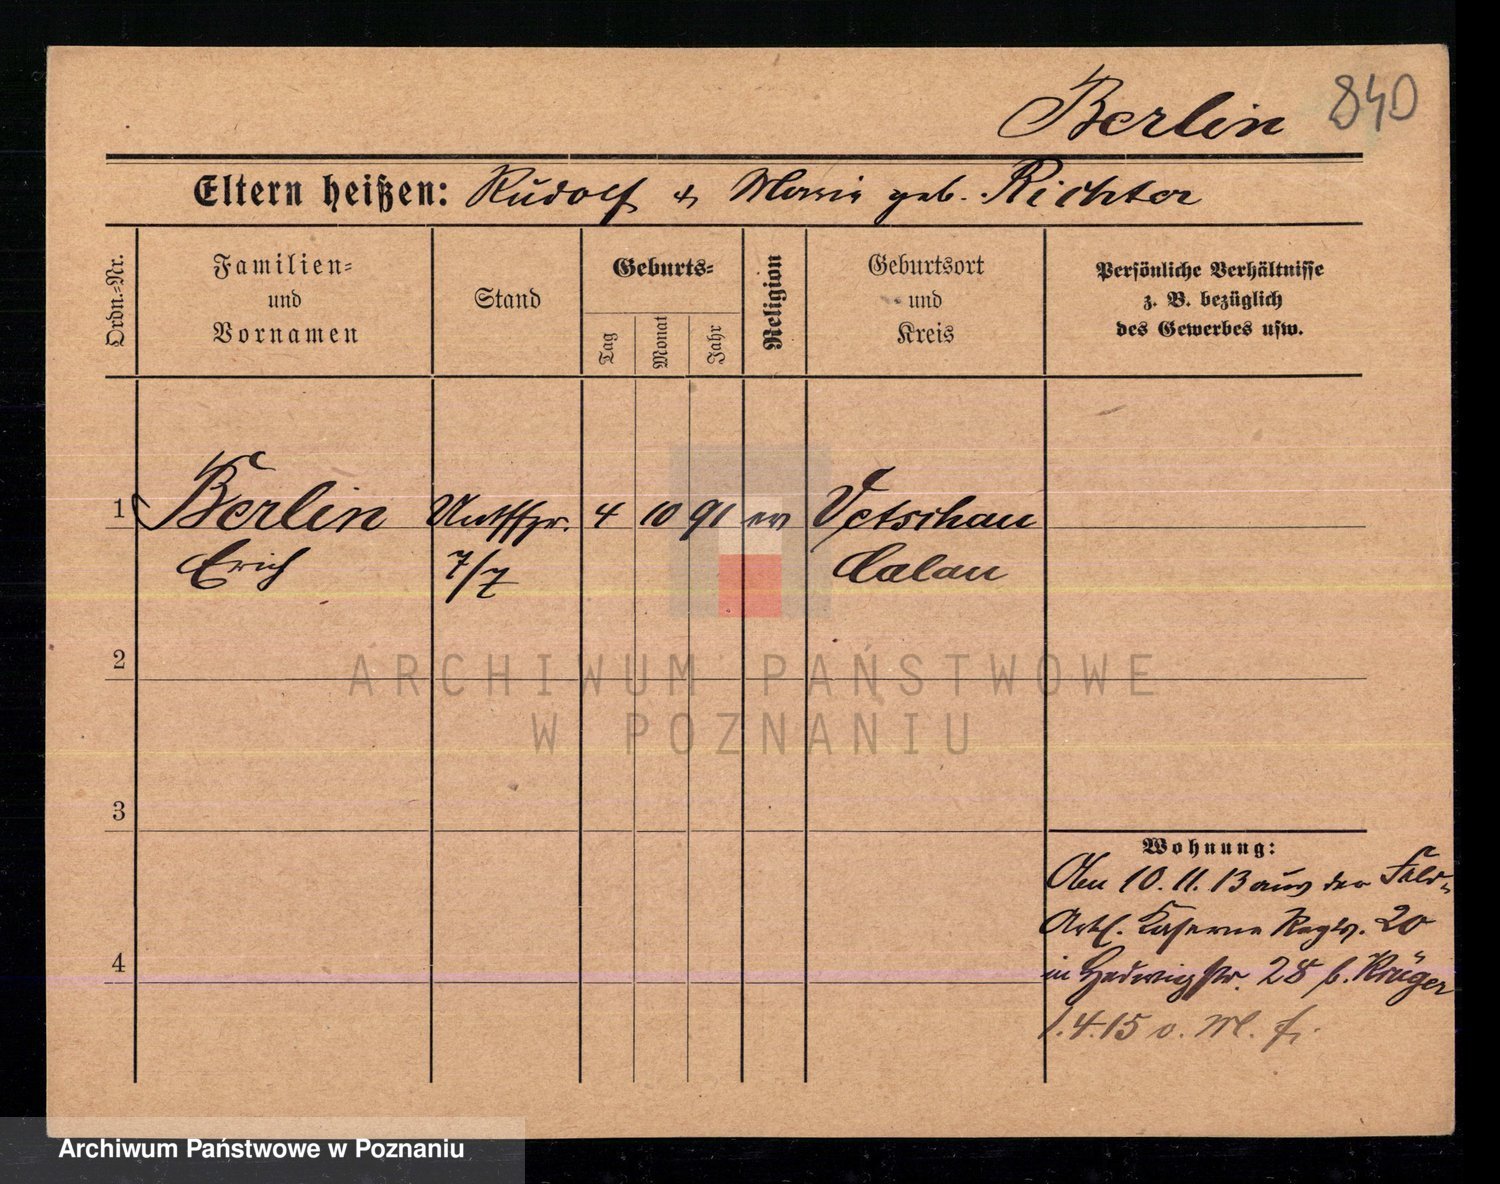 Berlin 840
Eltern heißen: Rudolf & Marie geb. Richter
Ordn.-Nr.
Familien-
und
Vornamen
Stand
Geburts-
Tag
Monat
Jahr
Religion
Geburtsort
und
Kreis
Persönliche Verhältnisse
z. B. bezüglich
des Gewerbes usw.
1 Berlin 4 10 91 ev Vetschau
Erich 7/7 Calau
2
3
4
Wohnung:
10.11.13 aus der Feld-
Artl. Kaserne Regts. 20
in Hedwigstr. 28 b. Krüger
1.4.15 v.
ARCHIWUM PAŃSTWOWE
W POZNANIU
Archiwum Państwowe w Poznaniu